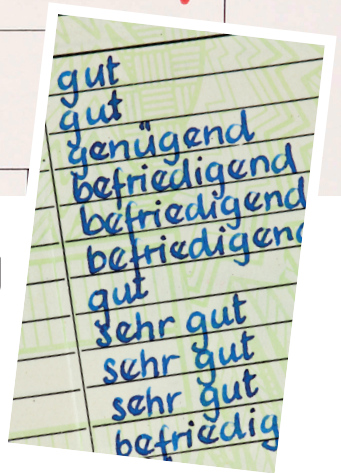 gut
gut
genügend
befriedigend
befriedigend
befriedigend
gut
sehr gut
sehr gut
sehr gut
befriedig